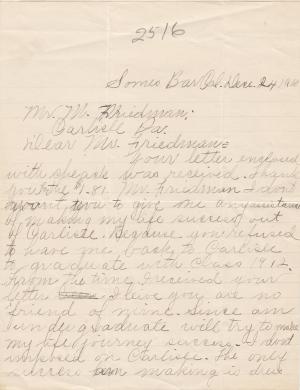 2516
Somes Bar, Cal. Dec. 24, 19
Mr. M. Friedman;
Carlisle Pa.
Dear Mr. Friedman=
Your letter enclosed
with speech was received. Thank
you the $1.81. Mr. Friedman I don't
want you to give me any assistance
of making my life success out
of Carlisle. Because you refused
to have me back to Carlisle
to graduate with Class 1912.
From the time I received your
letter I you are no
friend of mine. Since am
undergraduate will try to make
my life journey success. I don't
imposed on Carlisle. The only
success am making is due